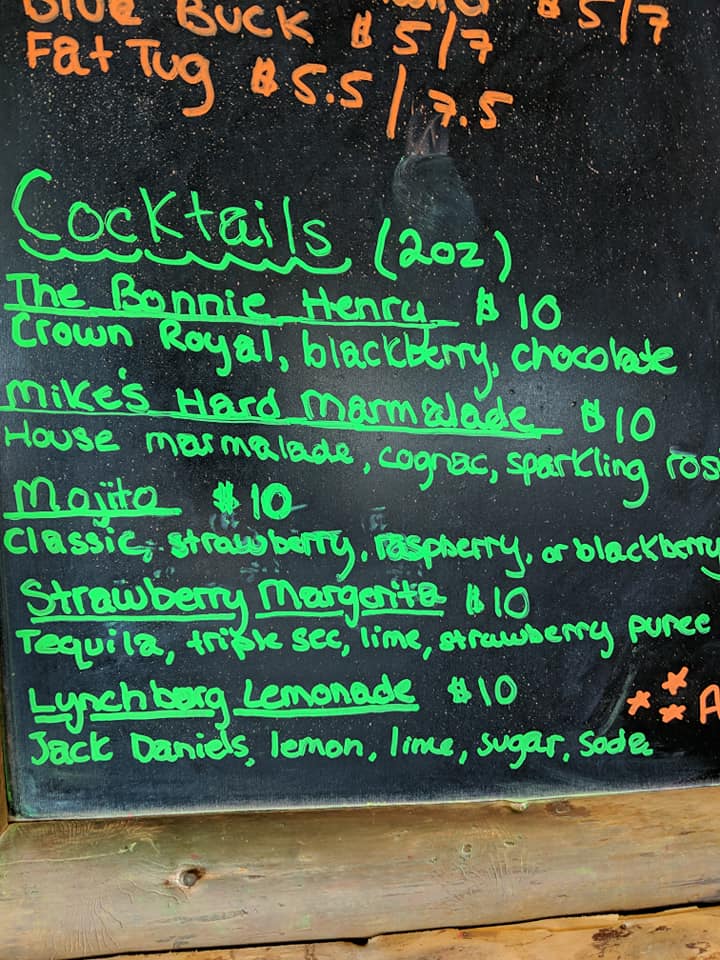 Blue Buck $5/7
$5/7
Fat Tug $5.5/7.5
Cocktails (2oz)
The Bonnie Henry $10
Crown Royal, blackberry, chocolate
Mike's Hard Marmalade $10
House marmalade, cognac, sparkling ros
Mojito $10
Classic, strawberry, raspberry, or blackberry
Strawberry Margarita $10
Tequila, triple sec, lime, strawberry puree
Lynchborg Lemonade $10
Jack Daniels, lemon, lime, sugar, soda
A